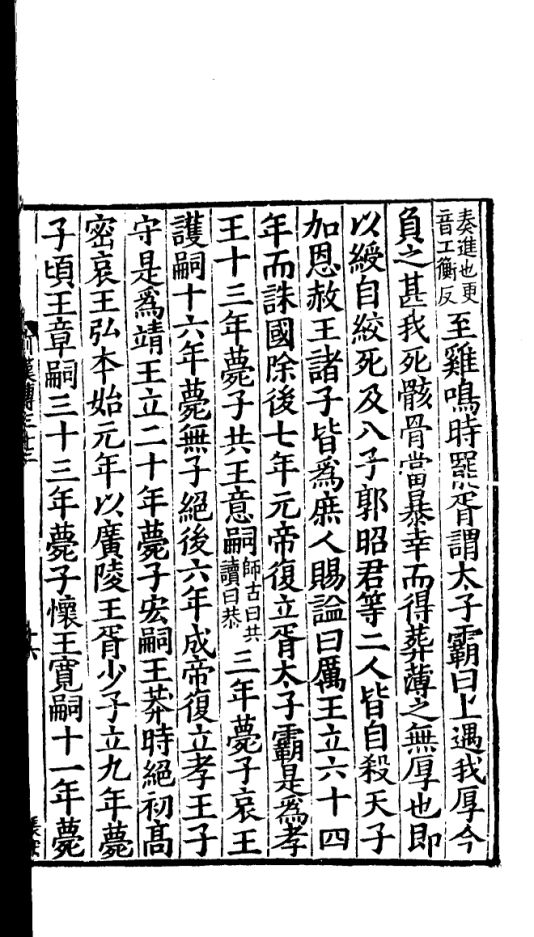 奏進也更
音工衡反
至雞鳴時罷胥謂太子霸曰上遇我厚今
負之甚我死骸骨當暴幸而得葬薄之無厚也即
以綬自絞死及八子郭昭君等二人皆自殺天子
加恩赦王諸子皆爲庶人賜謚曰厲王立六十四
年而誅國除後七年元帝復立胥太子霸是爲孝
王十三年薨子共王意嗣師古曰共讀曰恭三年薨子哀王
護嗣十六年薨無子絕後六年成帝復立孝王子
守是爲靖王立二十年薨子宏嗣王莽時絕初高
密哀王弘本始元年以廣陵王胥少子立九年薨
子頃王章嗣三十三年薨子懷王寬嗣十一年薨
漢傳三十三
十六